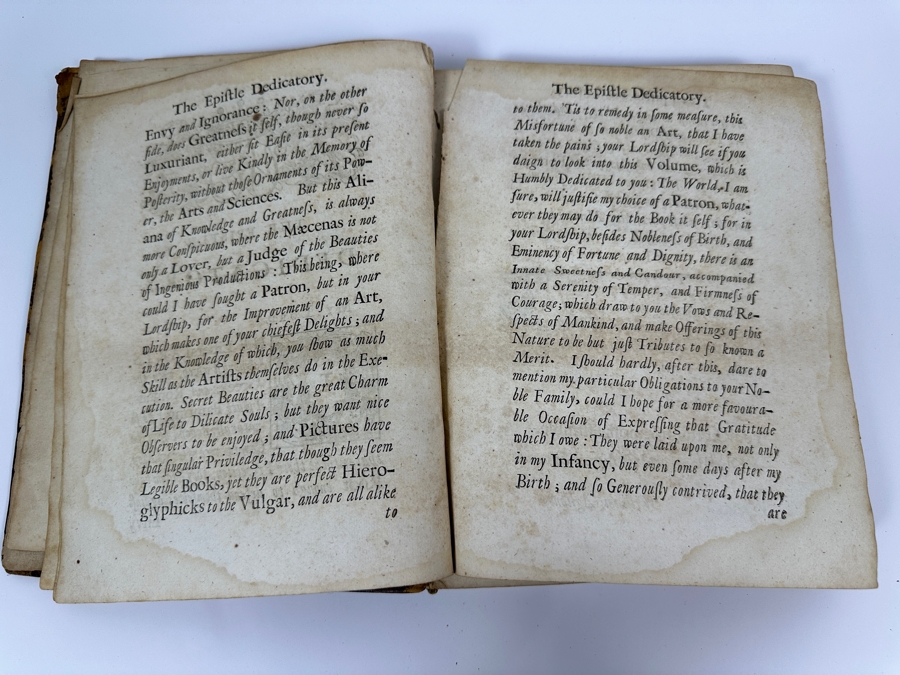 The Epiſtle Dedicatory.
Envy and Ignorance: Nor, on the other
ſide, does Greatneſs it ſelf, though never ſo
Luxuriant, either ſit Eaſie in its preſent
Enjoyments, or live Kindly in the Memory of
Poſterity, without thoſe Ornaments of its Pow-
er, the Arts and Sciences. But this Ali-
ana of Knowledge and Greatneſs, is always
more Conſpicuous, where the Mæcenas is not
only a Lover, but a Judge of the Beauties
of Ingenious Productions: This being, where
could I have ſought a Patron, but in your
Lordſhip, for the Improvement of an Art,
which makes one of your chiefeſt Delights; and
in the Knowledge of which, you ſhow as much
Skill as the Artiſts themſelves do in the Exe-
cution. Secret Beauties are the great Charm
of Life to Dilicate Souls; but they want nice
Obſervers to be enjoyed; and Pictures have
that ſingular Priviledge, that though they ſeem
Legible Books, yet they are perfect Hiero-
glyphicks to the Vulgar, and are all alike
to
The Epiſtle Dedicatory.
to them. 'Tis to remedy in ſome meaſure, this
Misfortune of ſo noble an Art, that I have
taken the pains; your Lordſhip will ſee if you
daign to look into this Volume, which is
Humbly Dedicated to you: The World, I am
ſure, will juſtifie my choice of a Patron, what-
ever they may do for the Book it ſelf; for in
your Lordſhip, beſides Nobleneſs of Birth, and
Eminency of Fortune and Dignity, there is an
Innate Sweetneſs and Candour, accompanied
with a Serenity of Temper, and Firmneſs of
Courage; which draw to you the Vows and Re-
ſpects of Mankind, and make Offerings of this
Nature to be but juſt Tributes to ſo known a
Merit. I ſhould hardly, after this, dare to
mention my particular Obligations to your No-
ble Family, could I hope for a more favoura-
ble Occaſion of Expreſſing that Gratitude
which I owe: They were laid upon me, not only
in my Infancy, but even ſome days after my
Birth; and ſo Generouſly contrived, that they
are